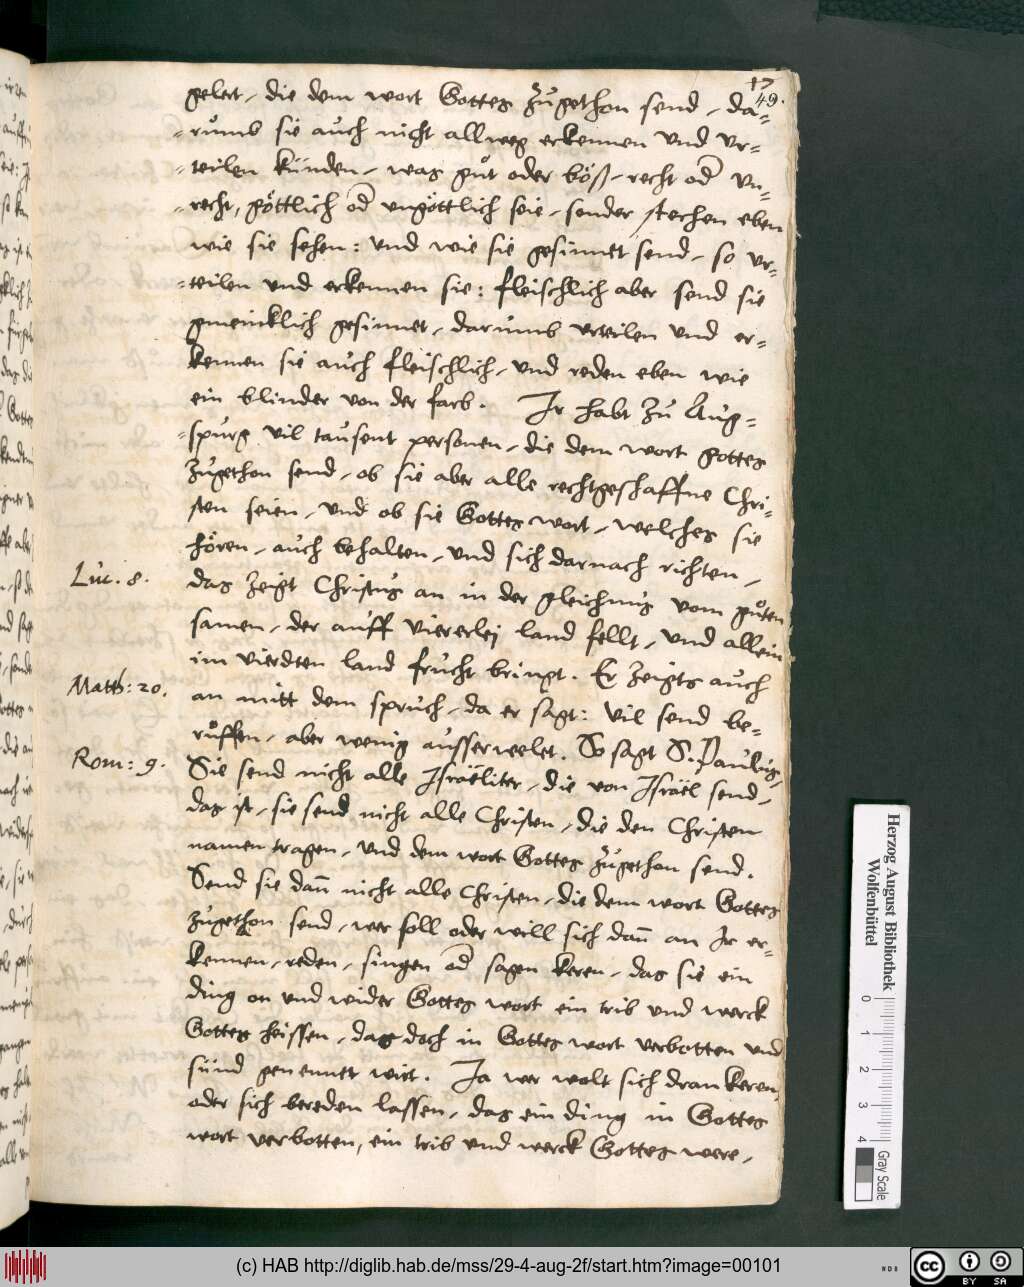 17
49.
gelert, die dem wort Gottes zugethon send, da=
rumb sie auch nicht allweg erkennen und vr=
teilen künden, was gůt oder böß, recht od un=
recht, göttlich od ungöttlich seie, sonder stechen eben
wie sie sehen: und wie sie gesinnet send, so vr=
teilen und erkennen sie: fleischlich aber send sie
gmeinklich gesinnet, darumb urteilen und er=
kennen sie auch fleischlich, und reden eben wie
ein blinder von der farb. Ir habt zu Aug=
spurg vil tausent personen, die dem wort gottes
zugethon send, ob sie aber alle rechtgeschaffne Chri=
sten seien, und ob sie Gottes wort, welches sie
hören, auch behalten, und sich darnach richten,
Luc. 8.
das zeigt Christus an in der gleichnus vom gůten
samen, der auff viererlej land fellt, und allein
im vierdten land frucht bringt. Er zeigts auch
Matth: 20.
an mitt dem spruch, da er sagt: Vil send be=
růffen, aber wenig ausserweelet. So sagt S. Paulus,
Rom: 9.
Sie send nicht alle Israëliter, die von Israël send,
das ist, sie send nicht alle Christen, die den Christen
namen tragen, und dem wort Gottes zugethon send.
Send sie dann nicht alle Christen, die dem wort Gottes
zugethon send, wer soll oder will sich dann an Ir er=
kennen, reden, singen od sagen keren, das sie ein
ding on und wider Gottes wort ein trib und werck
Gottes heissen, das doch in Gottes wort verbotten und
sünd genennet wirt. Ja wer wolt sich dran keren,
oder sich bereden lassen, das ein ding in Gottes
wort verbotten, ein trib und werck Gottes were,
Herzog August Bibliothek
Wolfenbüttel
0 1 2 3 4
Gray Scale
(c) HAB http://diglib.hab.de/mss/29-4-aug-2f/start.htm?image=00101
cc BY SA